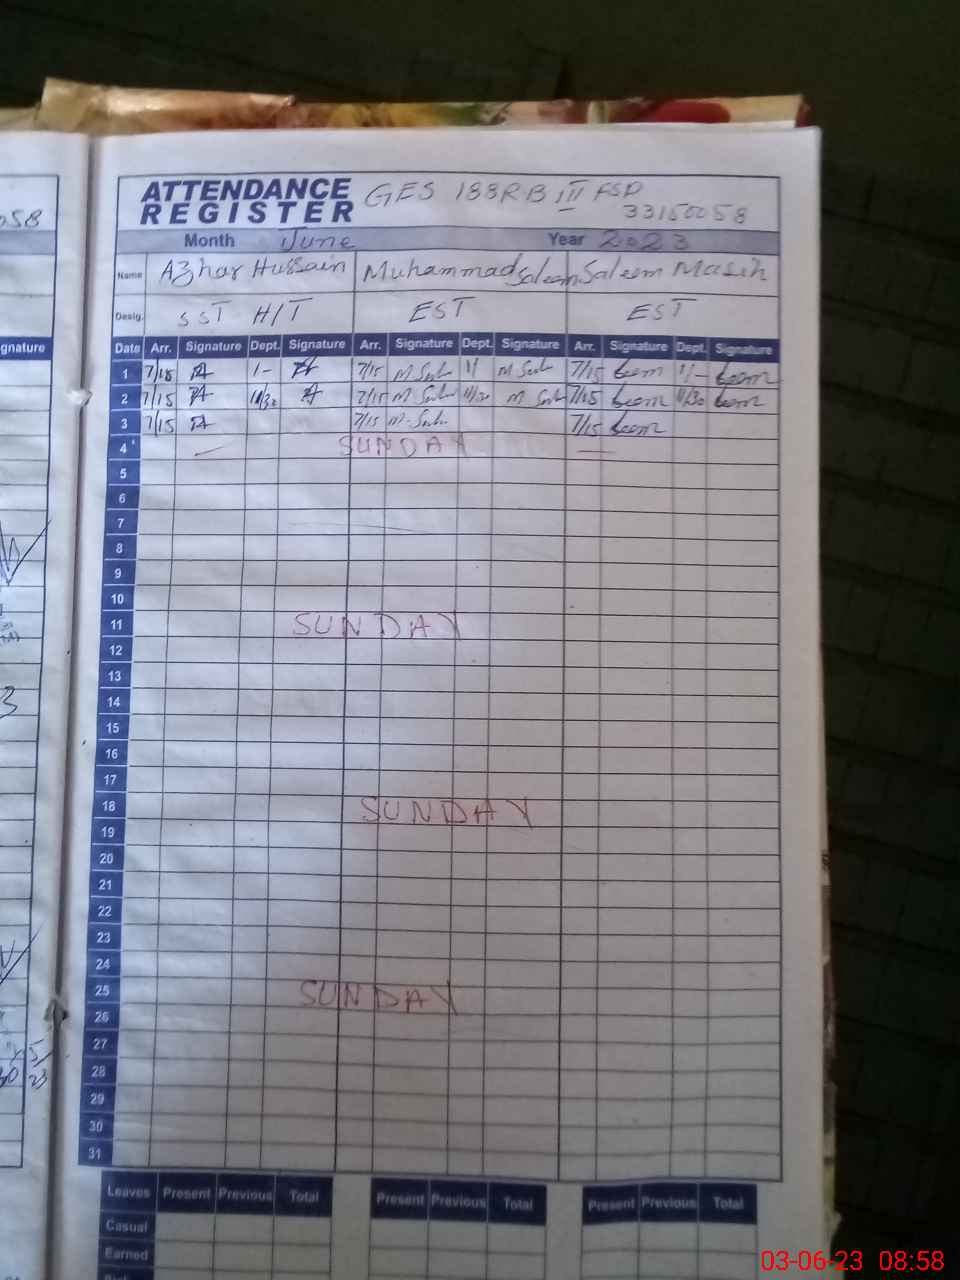 058
gnature
ATTENDANCE REGISTER GES 188RB III FSD
33150058
Month June Year 2023
Name Azhar Hussain Muhammad Saleem Saleem Masih
Desig. SST H/T EST EST
Date Arr. Signature Dept. Signature Arr. Signature Dept. Signature Arr. Signature Dept. Signature
1 7/15 1- 7/15 1/ 7/15 1/-
2 7/15 11/30 7/15 11/30 7/15 11/30
3 7/15 7/15 7/15
4 SUNDAY
5
6
7
8
9
10
11 SUNDAY
12
13
14
15
16
17
18 SUNDAY
19
20
21
22
23
24
25 SUNDAY
26
27
28
29
30
31
Leaves Present Previous Total Present Previous Total Present Previous Total
Casual
Earned
03-06-23 08:58